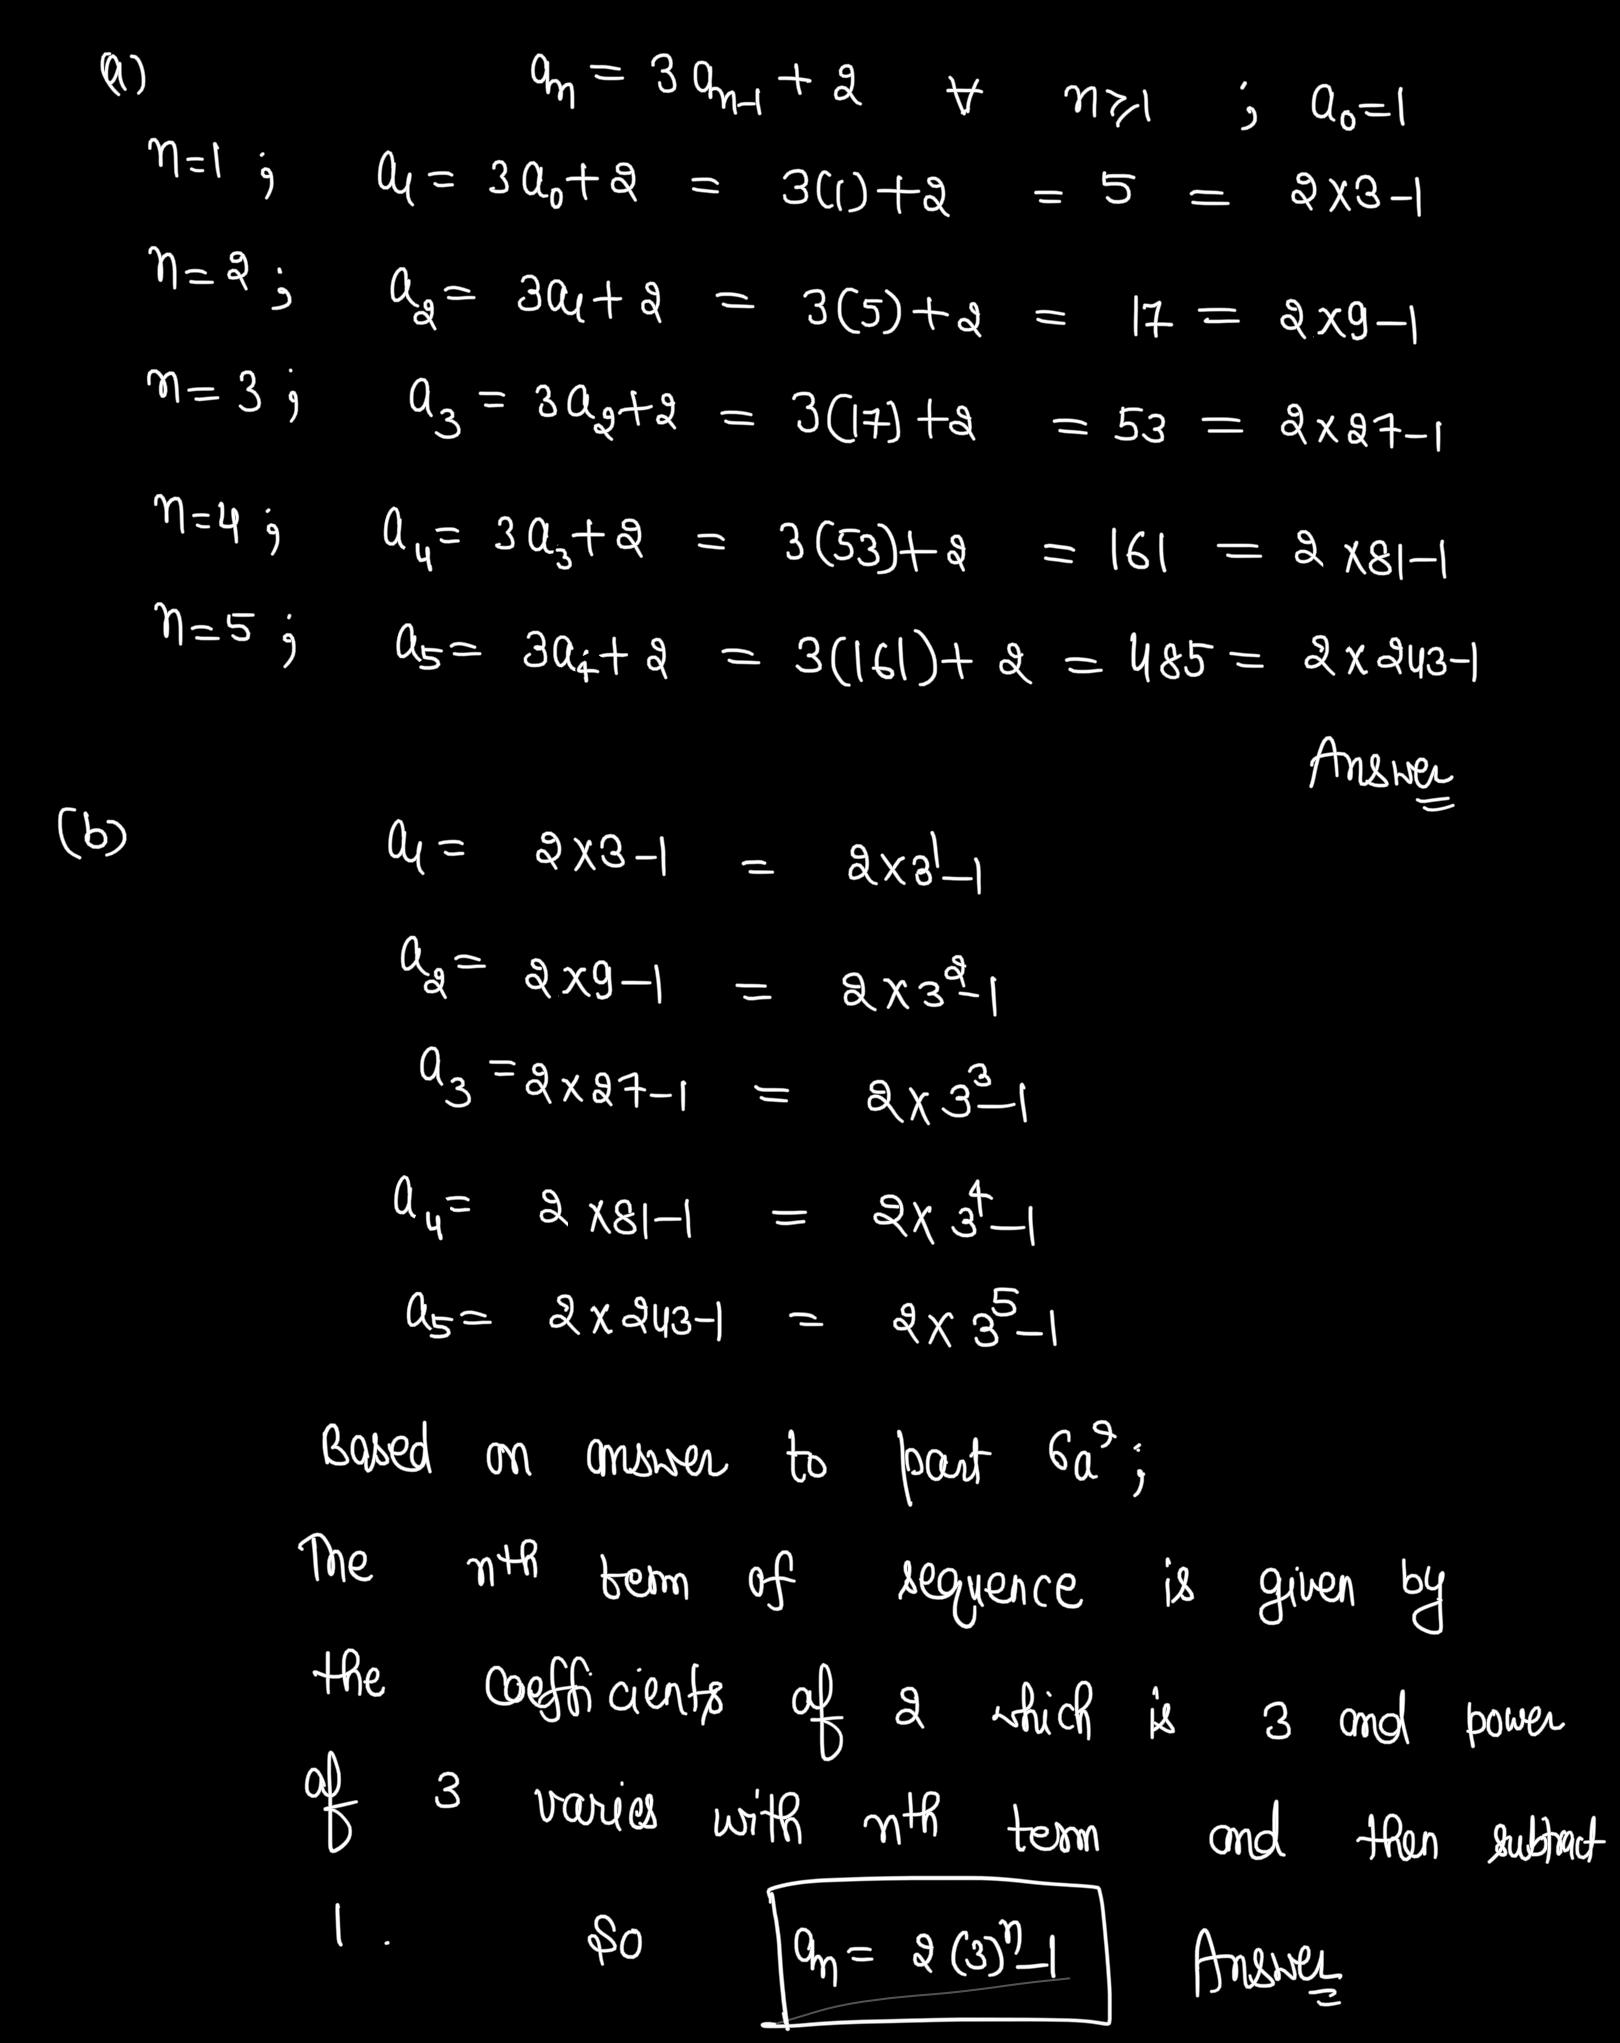 a) aₙ = 3aₙ₋₁ + 2 ∀ n⩾1 ; a₀=1
n=1 ; a₁ = 3a₀+2 = 3(1)+2 = 5 = 2×3-1
n=2 ; a₂= 3a₁+2 = 3(5)+2 = 17 = 2×9-1
n=3 ; a₃ = 3a₂+2 = 3(17)+2 = 53 = 2×27-1
n=4 ; a₄= 3a₃+2 = 3(53)+2 = 161 = 2×81-1
n=5 ; a₅= 3a₄+2 = 3(161)+2 = 485 = 2×243-1
Answer
(b) a₁ = 2×3-1 = 2×3¹-1
a₂= 2×9-1 = 2×3²-1
a₃ =2×27-1 = 2×3³-1
a₄= 2×81-1 = 2×3⁴-1
a₅= 2×243-1 = 2×3⁵-1
Based on answer to part 6a⁹;
The nth term of sequence is given by
the coefficients of 2 which is 3 and power
of 3 varies with nth term and then subtract
1. So aₙ = 2(3)ⁿ-1 Answer